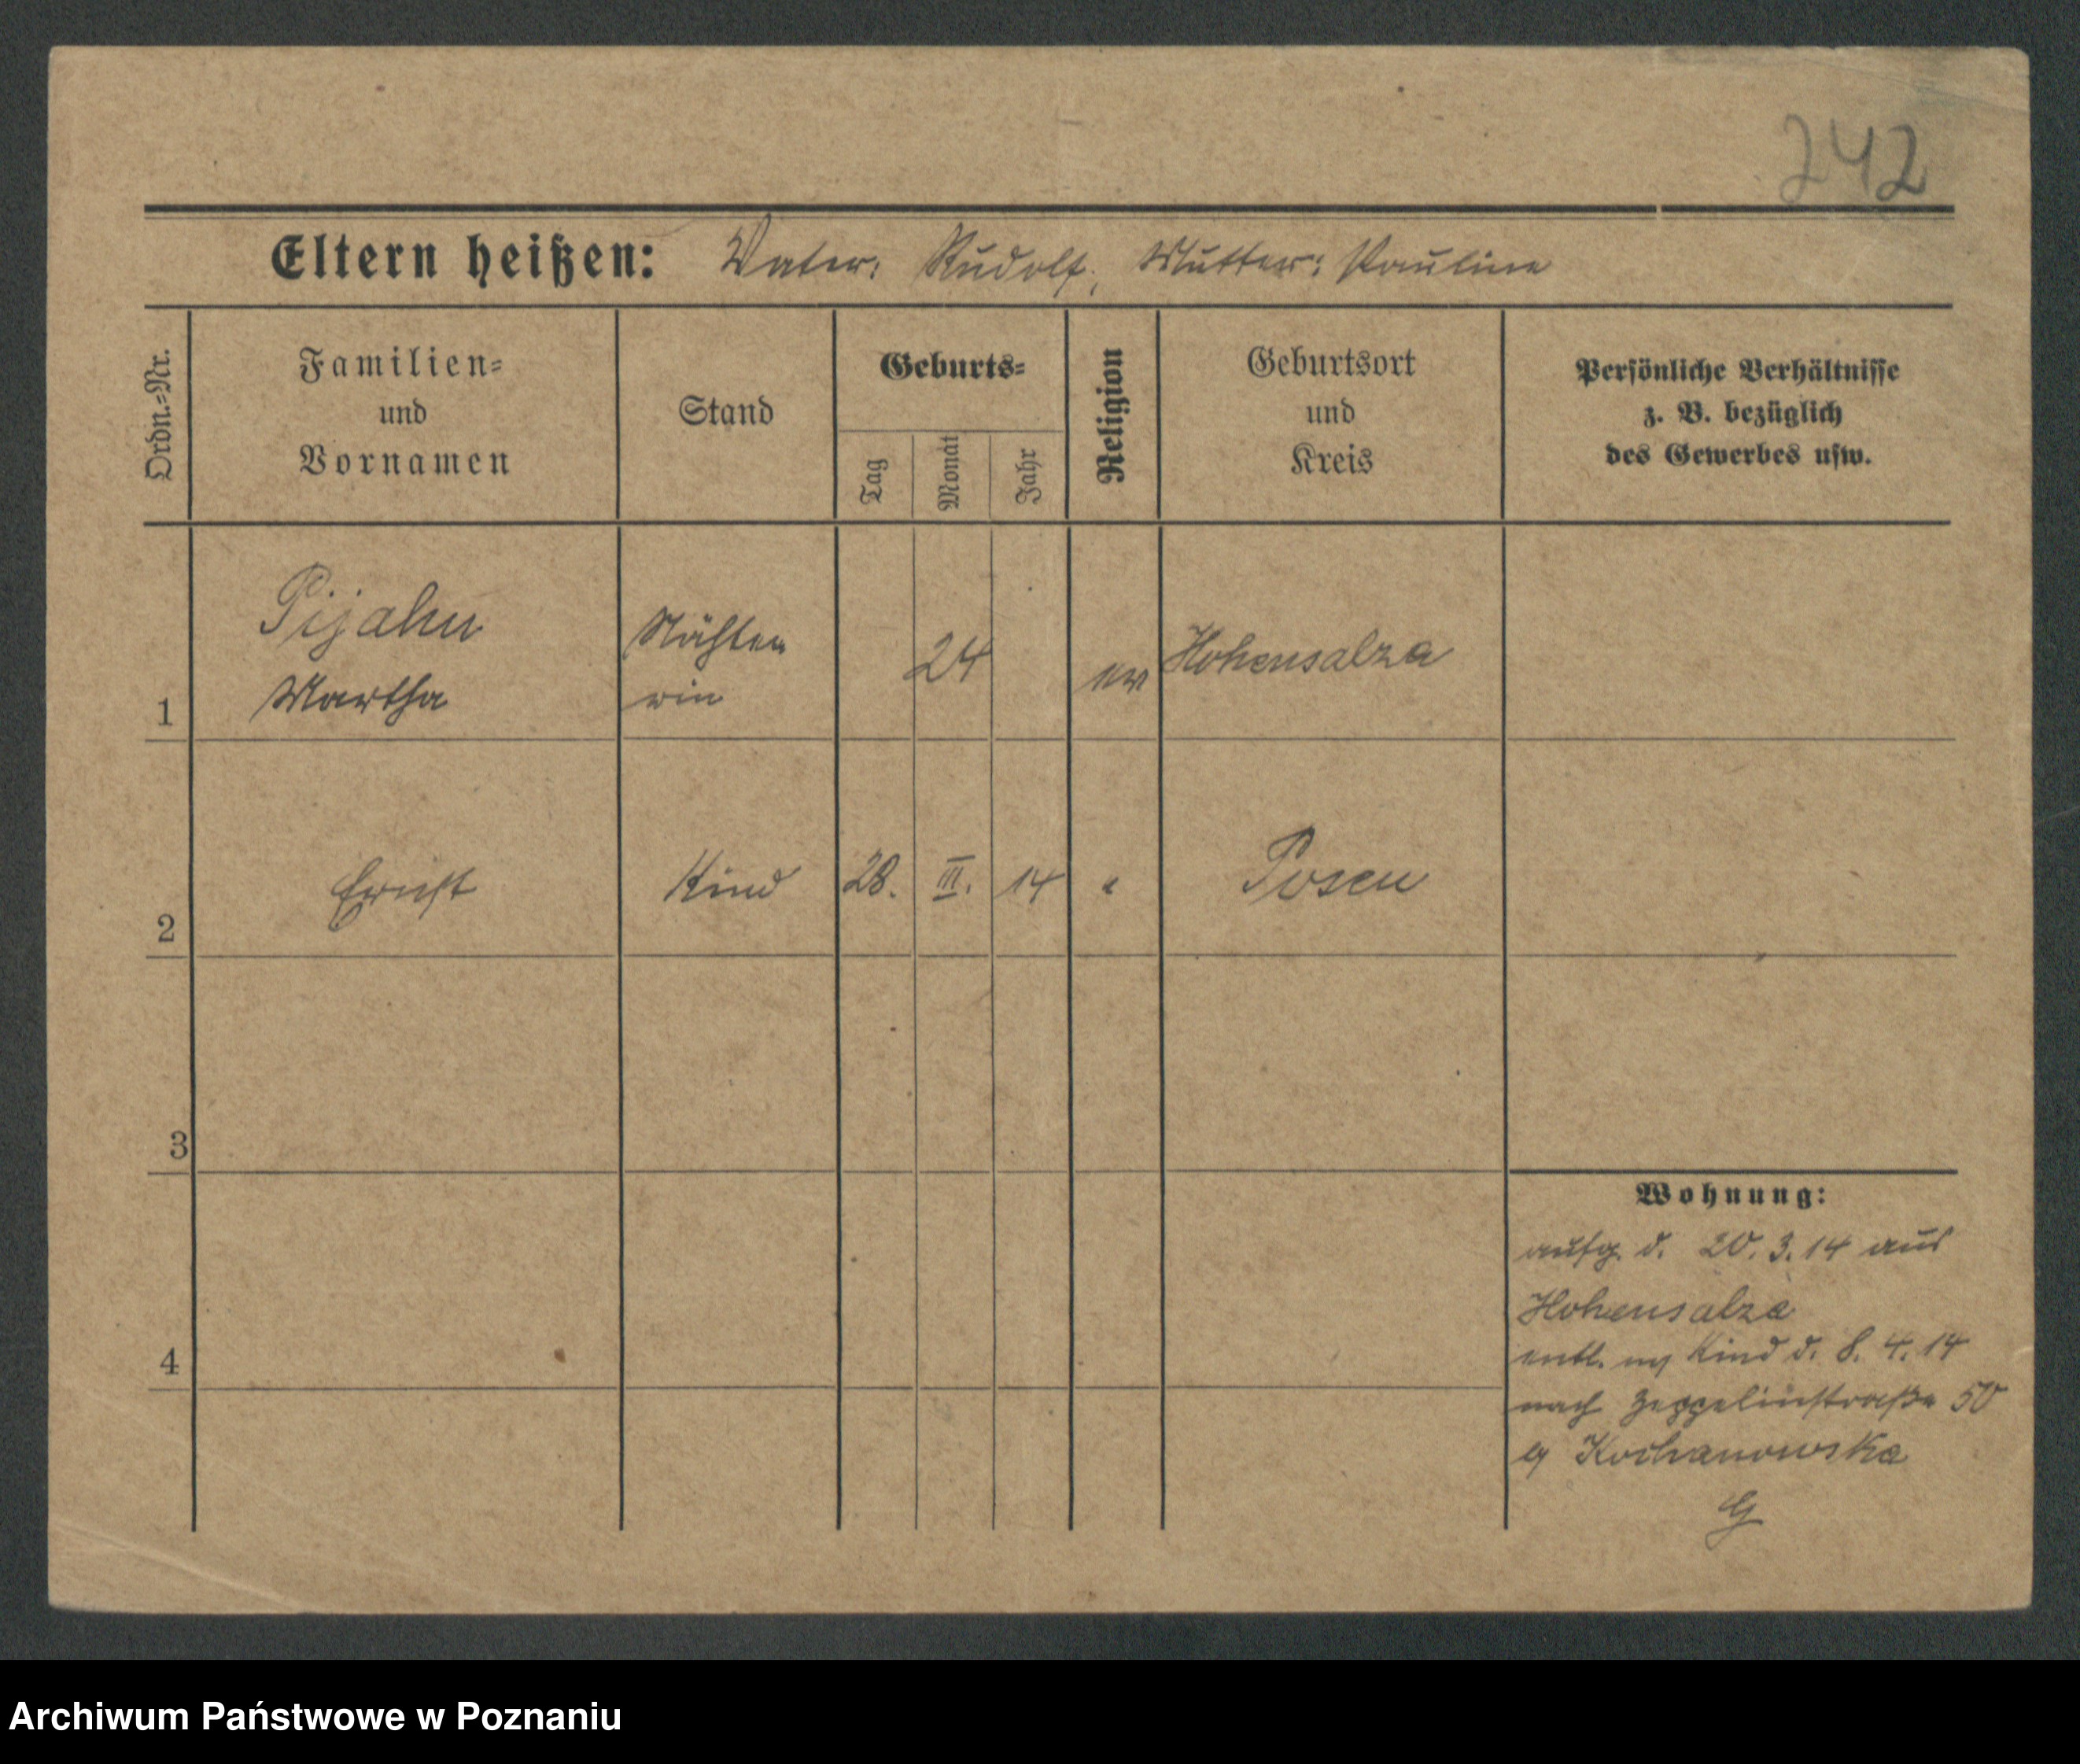 242
Eltern heißen: Vater: Rudolf, Mutter: Pauline
Ordn.-Nr.
Familien-
und
Vornamen
Stand
Geburts-
Tag
Monat
Jahr
Religion
Geburtsort
und
Kreis
Persönliche Verhältnisse
z. B. bezüglich
des Gewerbes usw.
1
Pijahn
Martha
Nähte
rin
24
ev
Hohensalza
2
Ernst
Kind
28. III. 14
"
Posen
3
4
Wohnung:
aufg. d. 20. 3. 14 aus
Hohensalza
entl. m Kind d. 8. 4. 14
nach Zeppelinstraße 50
Kochanowska
G
Archiwum Państwowe w Poznaniu